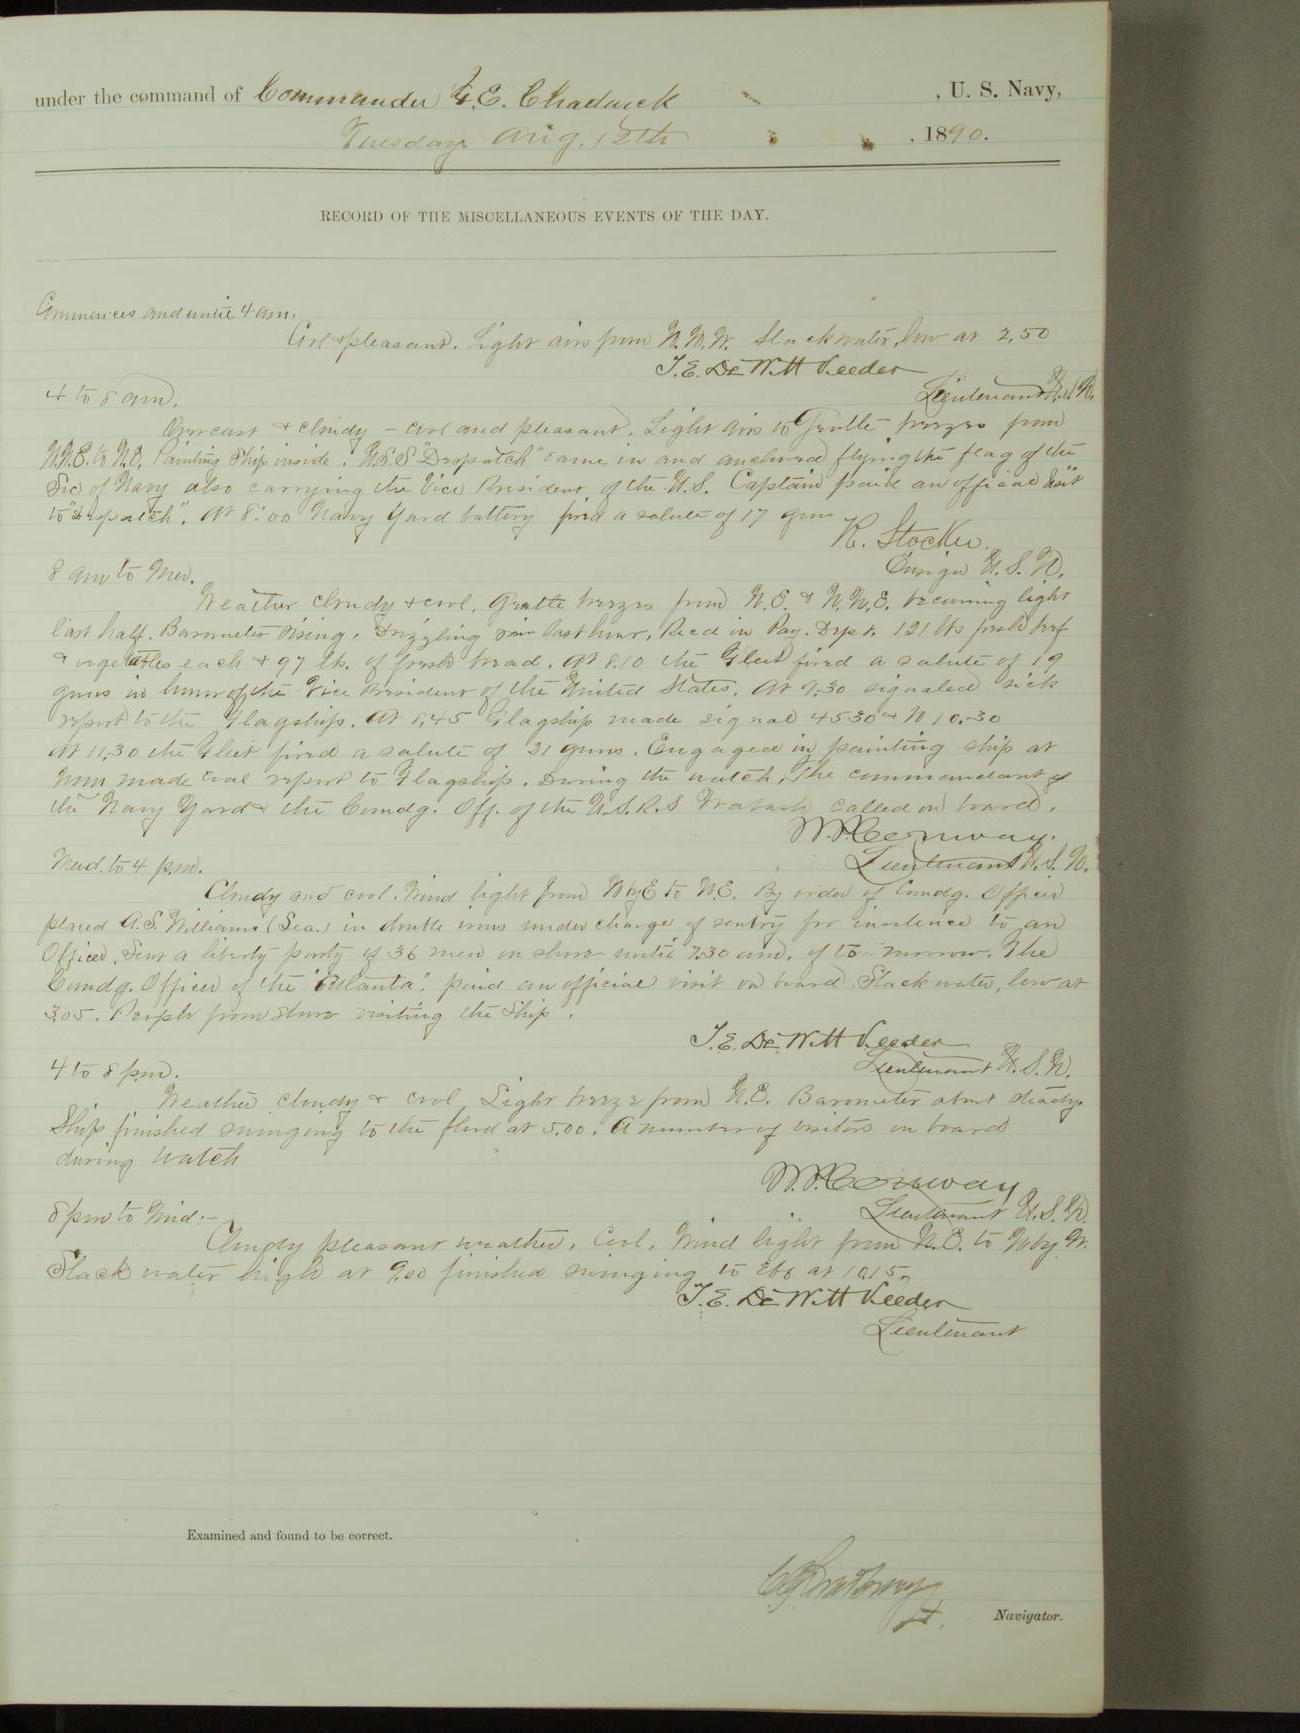 under the command of Commander F. E. Chadwick , U. S. Navy,
Tuesday Aug. 12th , 1890.
RECORD OF THE MISCELLANEOUS EVENTS OF THE DAY.
Commences and until 4 am.
Cool & pleasant. Light airs from N.N.W. Slack water, low at 2.50
T. E. De Witt Veeder
Lieutenant U.S.N.
4 to 8 am.
Overcast & cloudy – cool and pleasant. Light airs to Gentle breezes from
N.N.E. to N.E. Painting Ship inside. U.S.S. "Despatch" came in and anchored flying the flag of the
Sec of Navy also carrying the Vice President of the U.S. Captain paid an official visit
to "Despatch". At 8:00 Navy Yard battery fired a salute of 17 guns
R. Stocker.
Ensign U.S.N.
8 am to Mer.
Weather cloudy & cool. Gentle breezes from N.E. & N.N.E. becoming light
last half. Barometer rising. Drizzling rain last hour. Recd in Pay. Dept. 121 lbs fresh beef
& vegetables each & 97 lbs. of fresh bread. At 8.10 the Fleet fired a salute of 19
guns in honor of the Vice President of the United States. At 9.30 signaled sick
report to the Flagship. At 8.45 Flagship made signal 4530 & N 10.30
At 11.30 the Fleet fired a salute of 21 guns. Engaged in painting ship at
noon made coal report to Flagship. During the watch, The commandant of
the Navy Yard & the Comdg. Off. of the U.S.R.S Wabash called on board.
W.P. Conway.
Lieutenant U.S.N.
Merd. to 4 p.m.
Cloudy and cool. Wind light from NbyE to N.E. By order of Comdg. Officer
placed A.S. Williams (Sea.) in double irons under charge of sentry for insolence to an
Officer. Sent a liberty party of 36 men on shore until 7.30 am. of to-morrow. The
Comdg. Officer of the "Atlanta", paid an official visit on board. Slack water, low at
3.05. People from Shore visiting the Ship.
T. E. De Witt Veeder
Lieutenant U.S.N.
4 to 8 p.m.
Weather cloudy & cool Light breeze from N.E. Barometer about steady.
Ship finished swinging to the flood at 5.00. A number of visitors on board
during watch
W.P. Conway
Lieutenant U.S.N.
8 pm to Mid:–
Cloudy pleasant weather. Cool. Wind light from N.E. to N by W.
Slack water high at 9.00 finished swinging to Ebb at 10.15.
T. E. De Witt Veeder
Lieutenant
Examined and found to be correct.
Navigator.